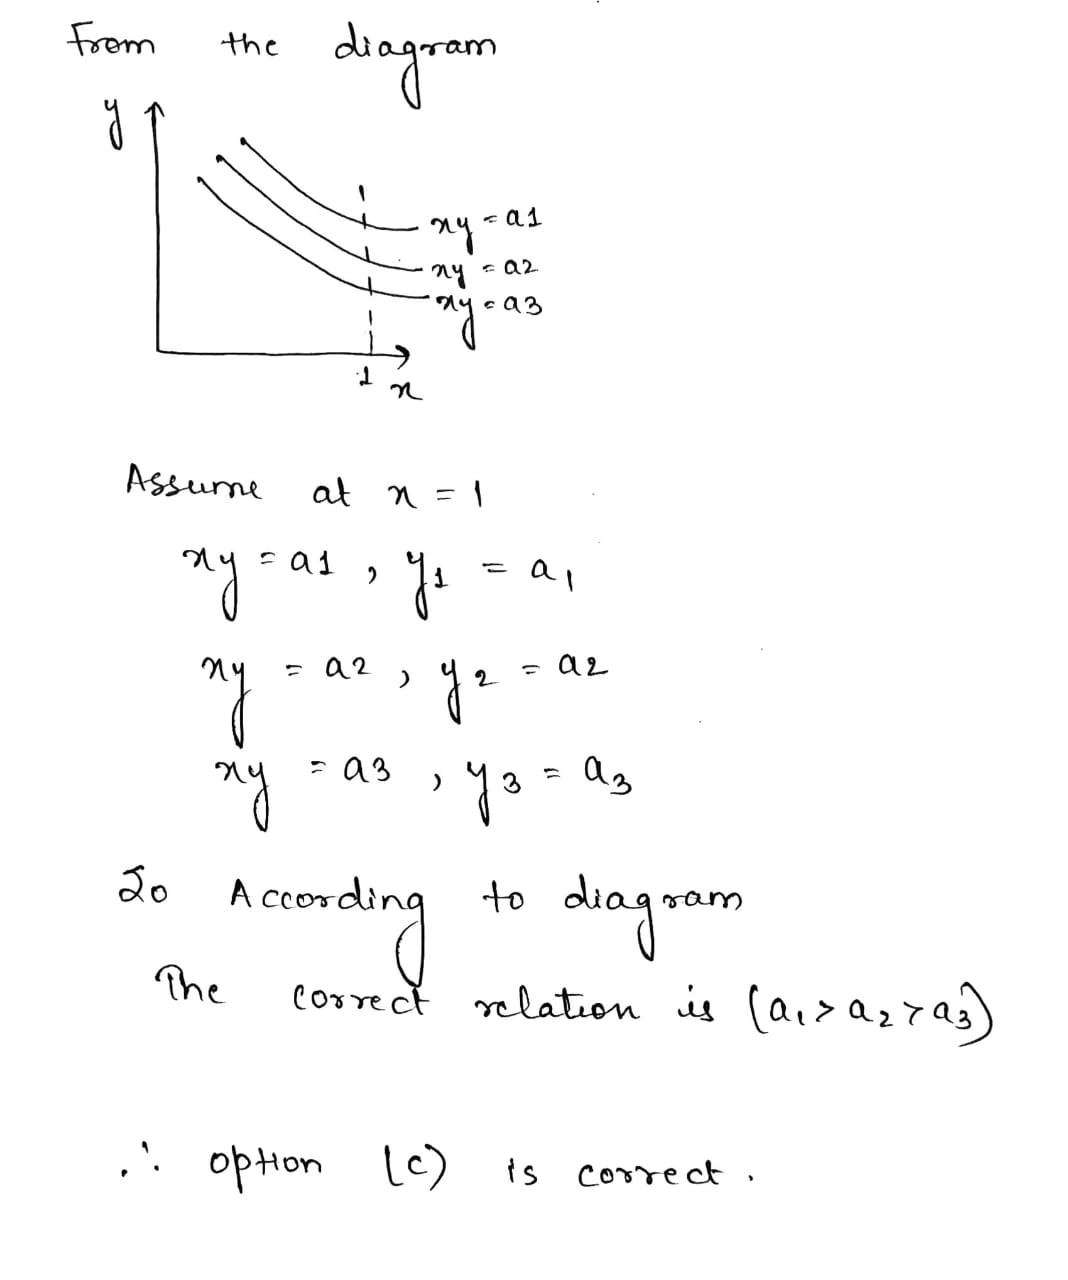 From the diagram
y
xy = a1
xy = a2
xy = a3
1
x
Assume at x = 1
xy = a1 , y1 = a1
xy = a2 , y2 = a2
xy = a3 , y3 = a3
So According to diagram
The correct relation is (a1 > a2 > a3)
∴ option (c) is correct .